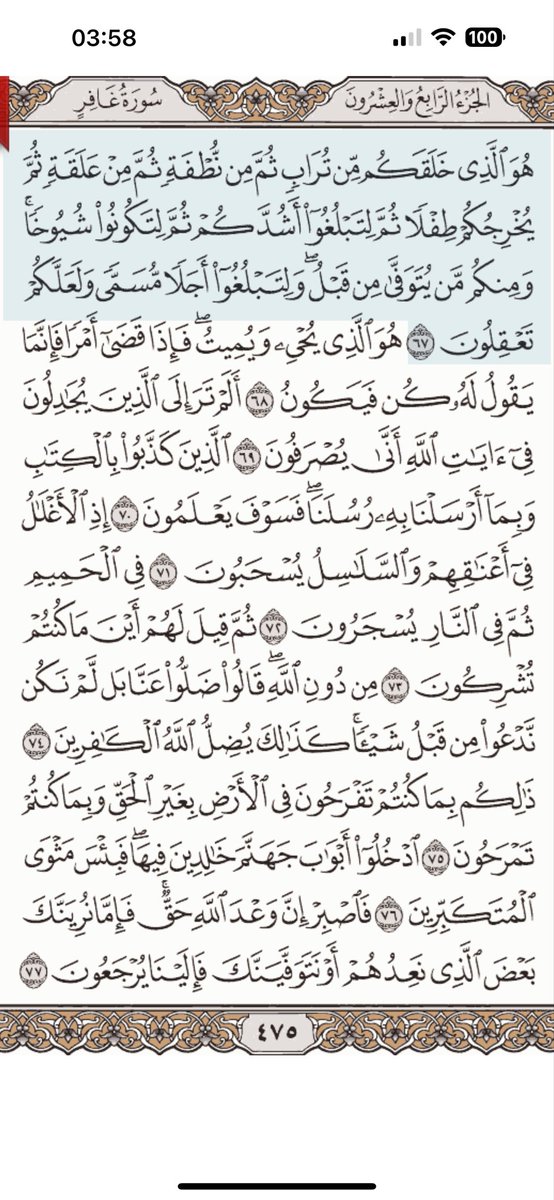 03:58
100
سُورَةُ غَافِرٍ
الجُزْءُ الرَّابِعُ وَالعِشْرُونَ
هُوَ ٱلَّذِى خَلَقَكُم مِّن تُرَابٍ ثُمَّ مِن نُّطْفَةٍ ثُمَّ مِنْ عَلَقَةٍ ثُمَّ
يُخْرِجُكُمْ طِفْلًا ثُمَّ لِتَبْلُغُوٓا۟ أَشُدَّكُمْ ثُمَّ لِتَكُونُوا۟ شُيُوخًا ۚ
وَمِنكُم مَّن يُتَوَفَّىٰ مِن قَبْلُ ۖ وَلِتَبْلُغُوٓا۟ أَجَلًا مُّسَمًّى وَلَعَلَّكُمْ
تَعْقِلُونَ ٦٧ هُوَ ٱلَّذِى يُحْىِۦ وَيُمِيتُ ۖ فَإِذَا قَضَىٰٓ أَمْرًا فَإِنَّمَا
يَقُولُ لَهُۥ كُن فَيَكُونُ ٦٨ أَلَمْ تَرَ إِلَى ٱلَّذِينَ يُجَٰدِلُونَ
فِىٓ ءَايَٰتِ ٱللَّهِ أَنَّىٰ يُصْرَفُونَ ٦٩ ٱلَّذِينَ كَذَّبُوا۟ بِٱلْكِتَٰبِ
وَبِمَآ أَرْسَلْنَا بِهِۦ رُسُلَنَا ۖ فَسَوْفَ يَعْلَمُونَ ٧٠ إِذِ ٱلْأَغْلَٰلُ
فِىٓ أَعْنَٰقِهِمْ وَٱلسَّلَٰسِلُ يُسْحَبُونَ ٧١ فِى ٱلْحَمِيمِ
ثُمَّ فِى ٱلنَّارِ يُسْجَرُونَ ٧٢ ثُمَّ قِيلَ لَهُمْ أَيْنَ مَا كُنتُمْ
تُشْرِكُونَ ٧٣ مِن دُونِ ٱللَّهِ ۖ قَالُوا۟ ضَلُّوا۟ عَنَّا بَل لَّمْ نَكُن
نَّدْعُوا۟ مِن قَبْلُ شَيْـًٔا ۚ كَذَٰلِكَ يُضِلُّ ٱللَّهُ ٱلْكَٰفِرِينَ ٧٤
ذَٰلِكُم بِمَا كُنتُمْ تَفْرَحُونَ فِى ٱلْأَرْضِ بِغَيْرِ ٱلْحَقِّ وَبِمَا كُنتُمْ
تَمْرَحُونَ ٧٥ ٱدْخُلُوٓا۟ أَبْوَٰبَ جَهَنَّمَ خَٰلِدِينَ فِيهَا ۖ فَبِئْسَ مَثْوَى
ٱلْمُتَكَبِّرِينَ ٧٦ فَٱصْبِرْ إِنَّ وَعْدَ ٱللَّهِ حَقٌّ ۚ فَإِمَّا نُرِيَنَّكَ
بَعْضَ ٱلَّذِى نَعِدُهُمْ أَوْ نَتَوَفَّيَنَّكَ فَإِلَيْنَا يُرْجَعُونَ ٧٧
٤٧٥